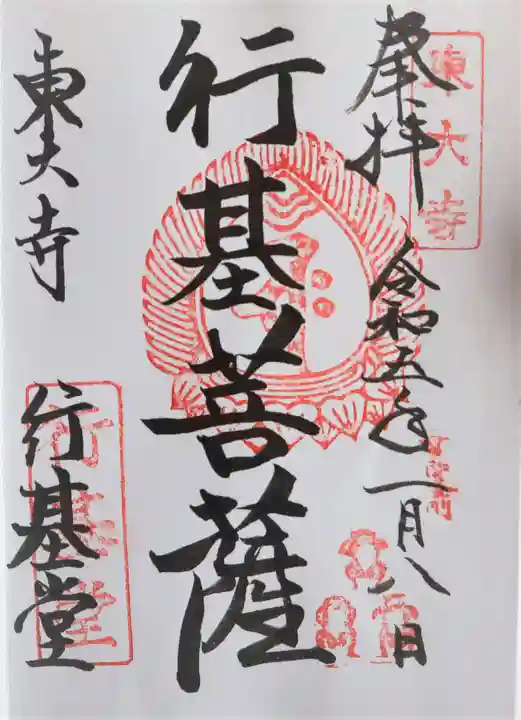 奉拝
東大寺
令和五年一月八日
行基菩薩
東大寺
行基堂
行基堂